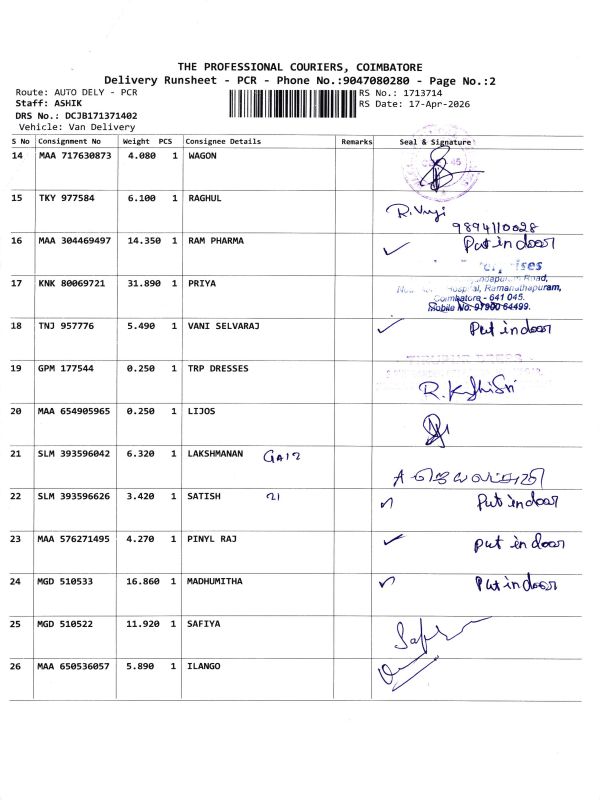 THE PROFESSIONAL COURIERS, COIMBATORE
Delivery Runsheet - PCR - Phone No.:9047080280 - Page No.:2
Route: AUTO DELY - PCR
RS No.: 1713714
Staff: ASHIK
RS Date: 17-Apr-2026
DRS No.: DCJB171371402
Vehicle: Van Delivery
S No Consignment No Weight PCS Consignee Details Remarks Seal & Signature
14 MAA 717630873 4.080 1 WAGON
15 TKY 977584 6.100 1 RAGHUL
9894110028
16 MAA 304469497 14.350 1 RAM PHARMA ✓ Put in door
17 KNK 80069721 31.890 1 PRIYA
Road,
Ramanathapuram,
Coimbatore - 641 045.
Mobile No. 97900 64499.
18 TNJ 957776 5.490 1 VANI SELVARAJ ✓ Put in door
19 GPM 177544 0.250 1 TRP DRESSES
20 MAA 654905965 0.250 1 LIJOS
21 SLM 393596042 6.320 1 LAKSHMANAN
22 SLM 393596626 3.420 1 SATISH 21 ✓ Put in door
23 MAA 576271495 4.270 1 PINYL RAJ ✓ put in door
24 MGD 510533 16.860 1 MADHUMITHA ✓ Put in door
25 MGD 510522 11.920 1 SAFIYA
26 MAA 650536057 5.890 1 ILANGO